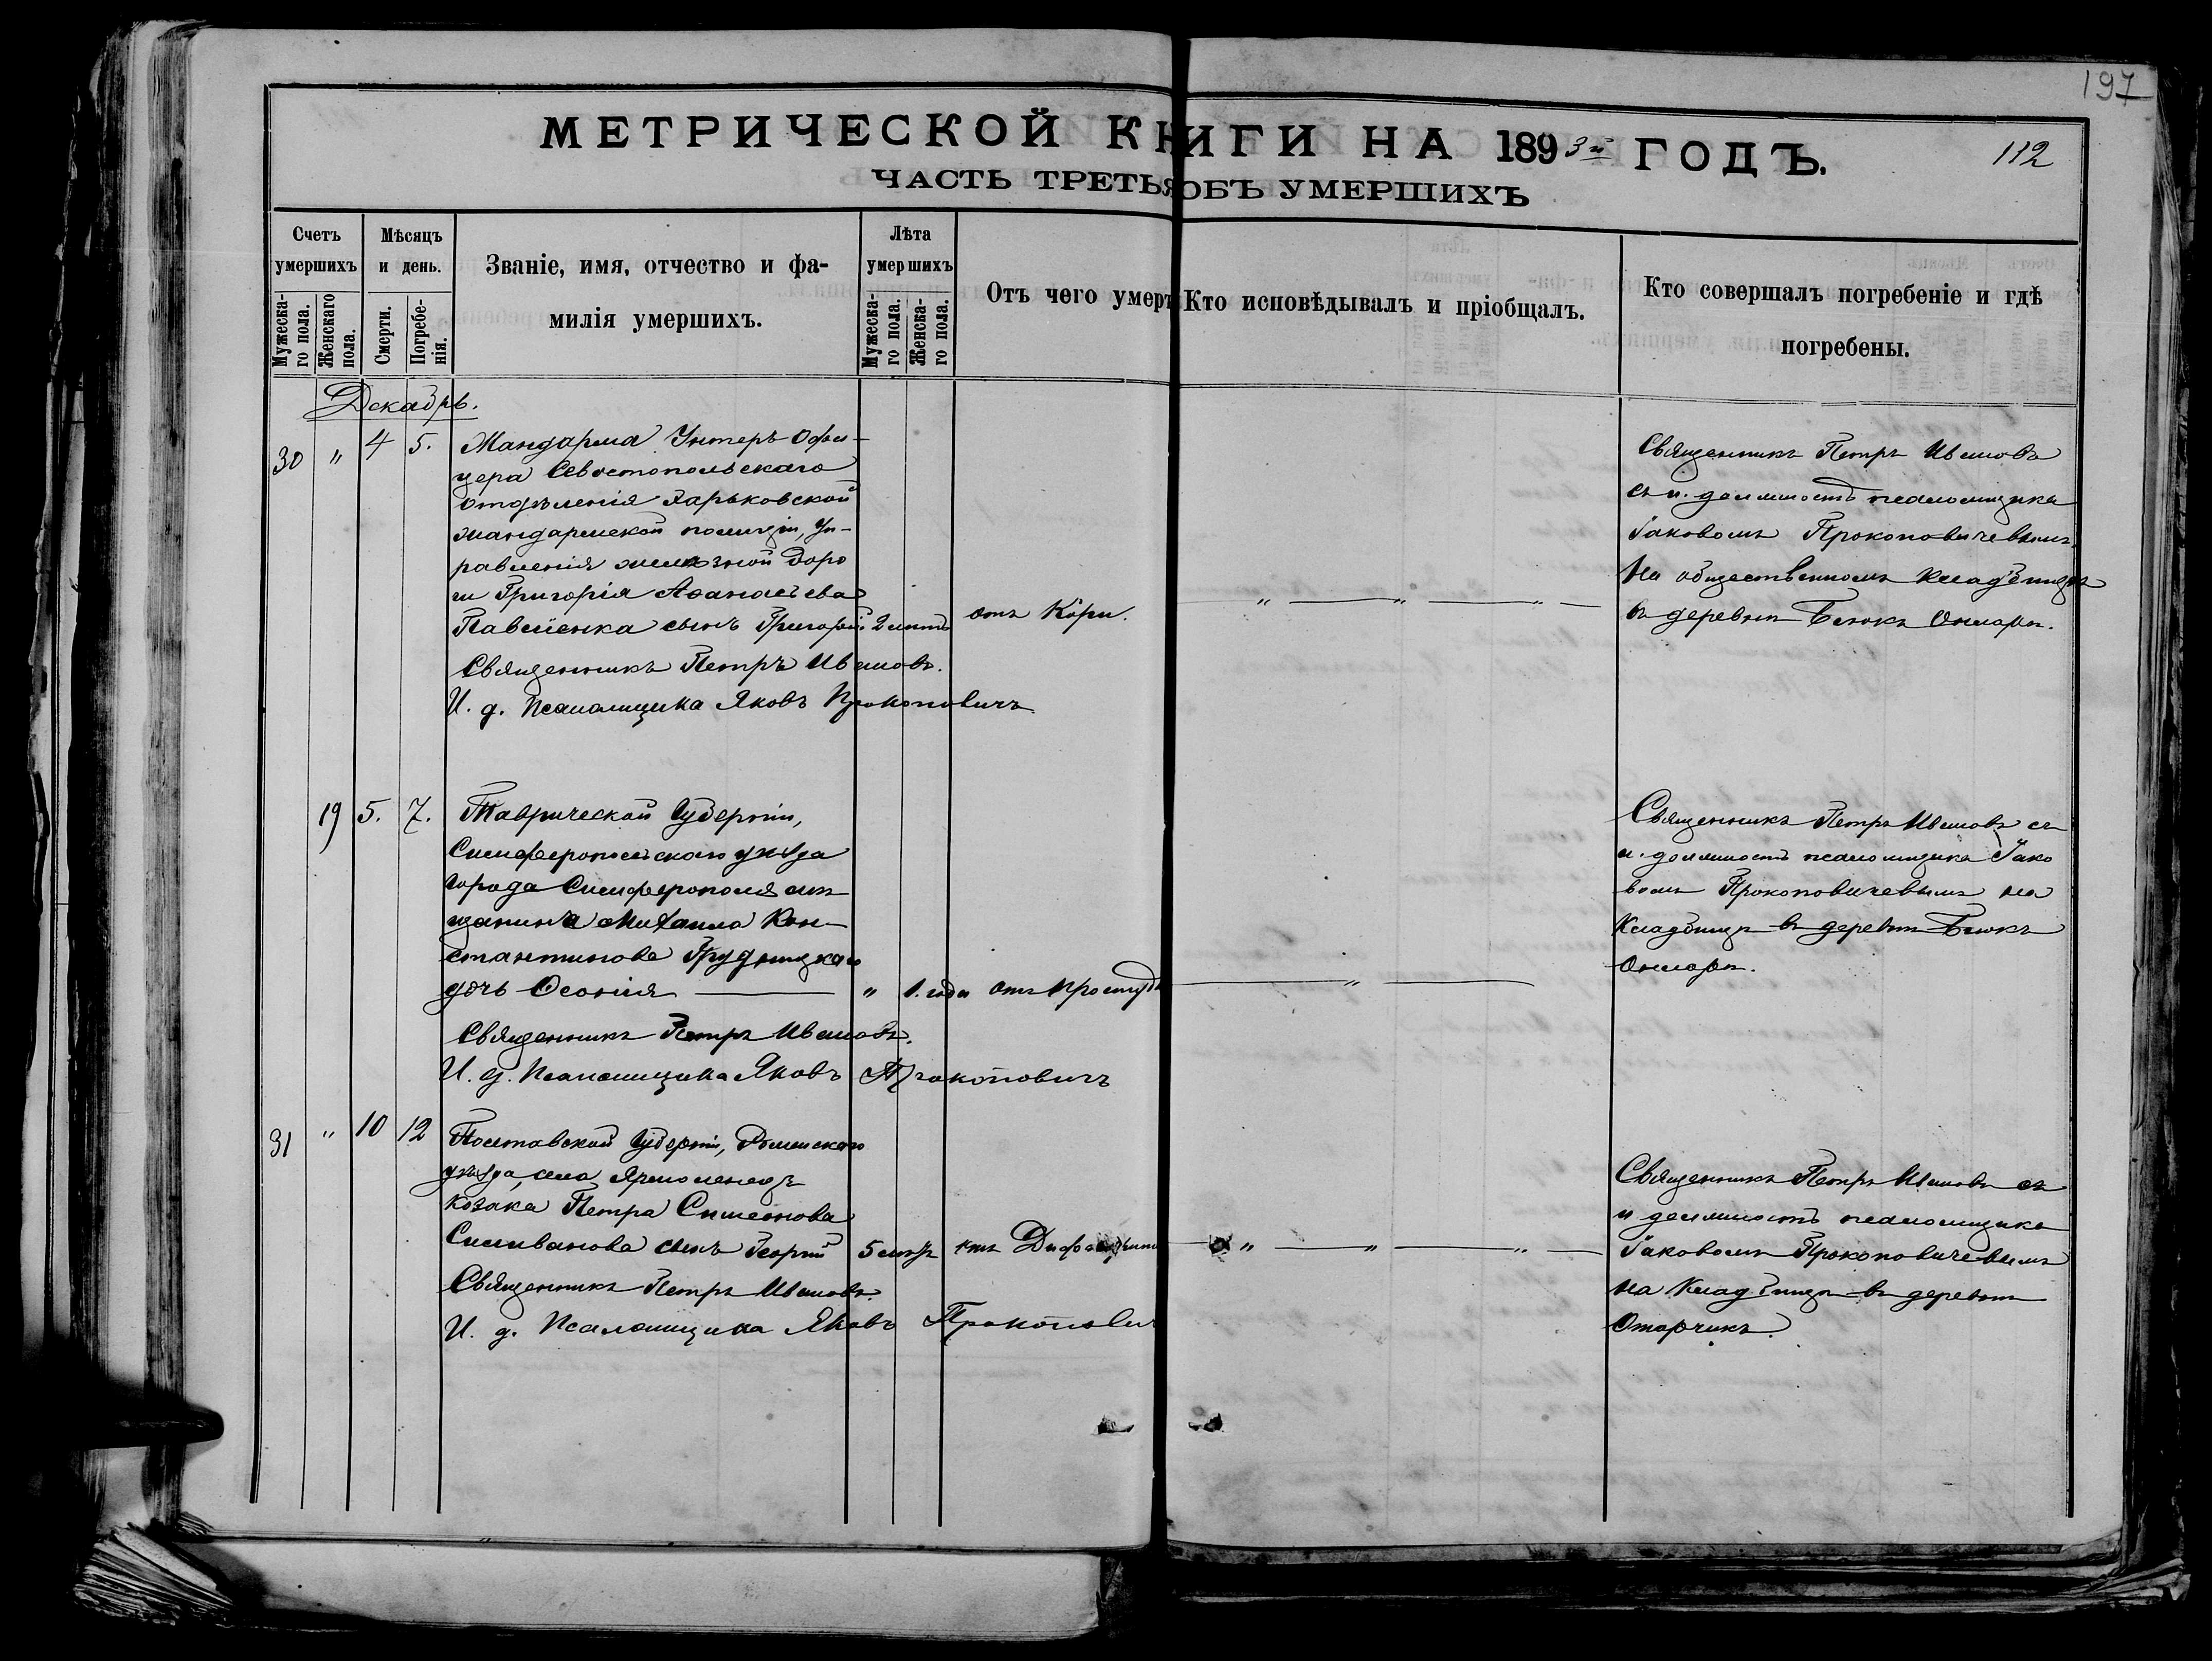 197
МЕТРИЧЕСКОЙ КНИГИ НА 1893й ГОДЪ.
112
ЧАСТЬ ТРЕТЬЯ ОБЪ УМЕРШИХЪ
Счетъ умершихъ
Мужеска-го пола.
Женскаго пола.
Мѣсяцъ и день.
Смерти.
Погребе-нія.
Званіе, имя, отчество и фа-
милія умершихъ.
Лѣта умершихъ
Мужеска-го пола.
Женска-го пола.
Отъ чего умеръ
Кто исповѣдывалъ и пріобщалъ.
Кто совершалъ погребеніе и гдѣ
погребены.
Декабрь.
30 " 4 5.
Жандарма Унтеръ-Офи-
цера Севостопольскаго
отдѣленія Харьковской
жандармской полиціи, Уп-
равленія желѣзной Доро
ги Григорія Аѳанасьева
Павленка сынъ Григорій 2 лѣтъ отъ Кори.
Священникъ Петръ Ивановъ.
И. д. Псаломщика Яковъ Прокоповичъ
Священникъ Петръ Ивановъ
съ и. должность псаломщика
Іаковомъ Прокоповичевымъ.
На общественномъ кладбищѣ
въ деревнѣ Біюкъ Онларъ.
19 5. 7.
Таврической Губерніи,
Симферопольскаго уѣзда
города Симферополя мѣ
щанина Михаила Кон-
стантинова Грудницкаго
дочь Ѳеонія " 1. года отъ Простуды
Священникъ Петръ Ивановъ.
И. д. Псаломщика Яковъ Прокоповичъ
Священникъ Петръ Ивановъ съ
и. должность псаломщика Іако
вомъ Прокоповичевымъ на
Кладбищѣ въ деревнѣ Біюкъ
Онларѣ.
31 " 10 12
Полтавской Губерніи, Роменскаго
уѣзда, села
козака Петра Симеонова
Селиванова сынъ Георгій 5 отъ
Священникъ Петръ Ивановъ.
И. д. Псаломщика Яковъ Прокопович
Священникъ Петръ Ивановъ съ
и должность псаломщика
Іаковомъ Прокоповичевымъ
на Кладбищѣ въ деревнѣ
Отарчикъ.